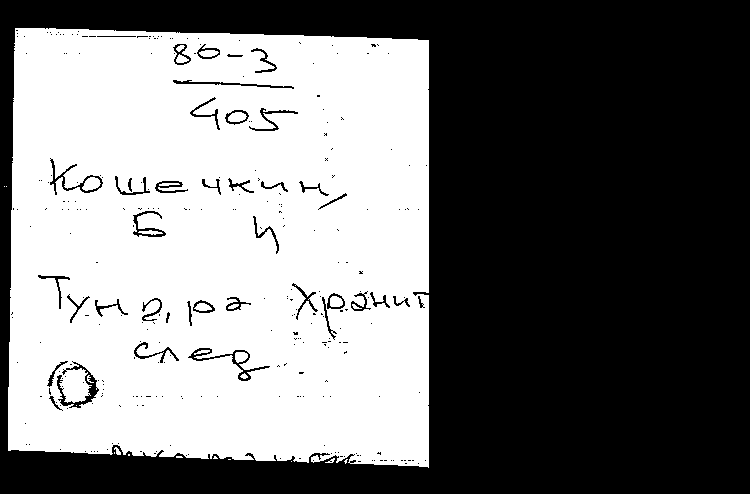 80-3
405
Кошечкин,
Б И
Тундра хранит
след